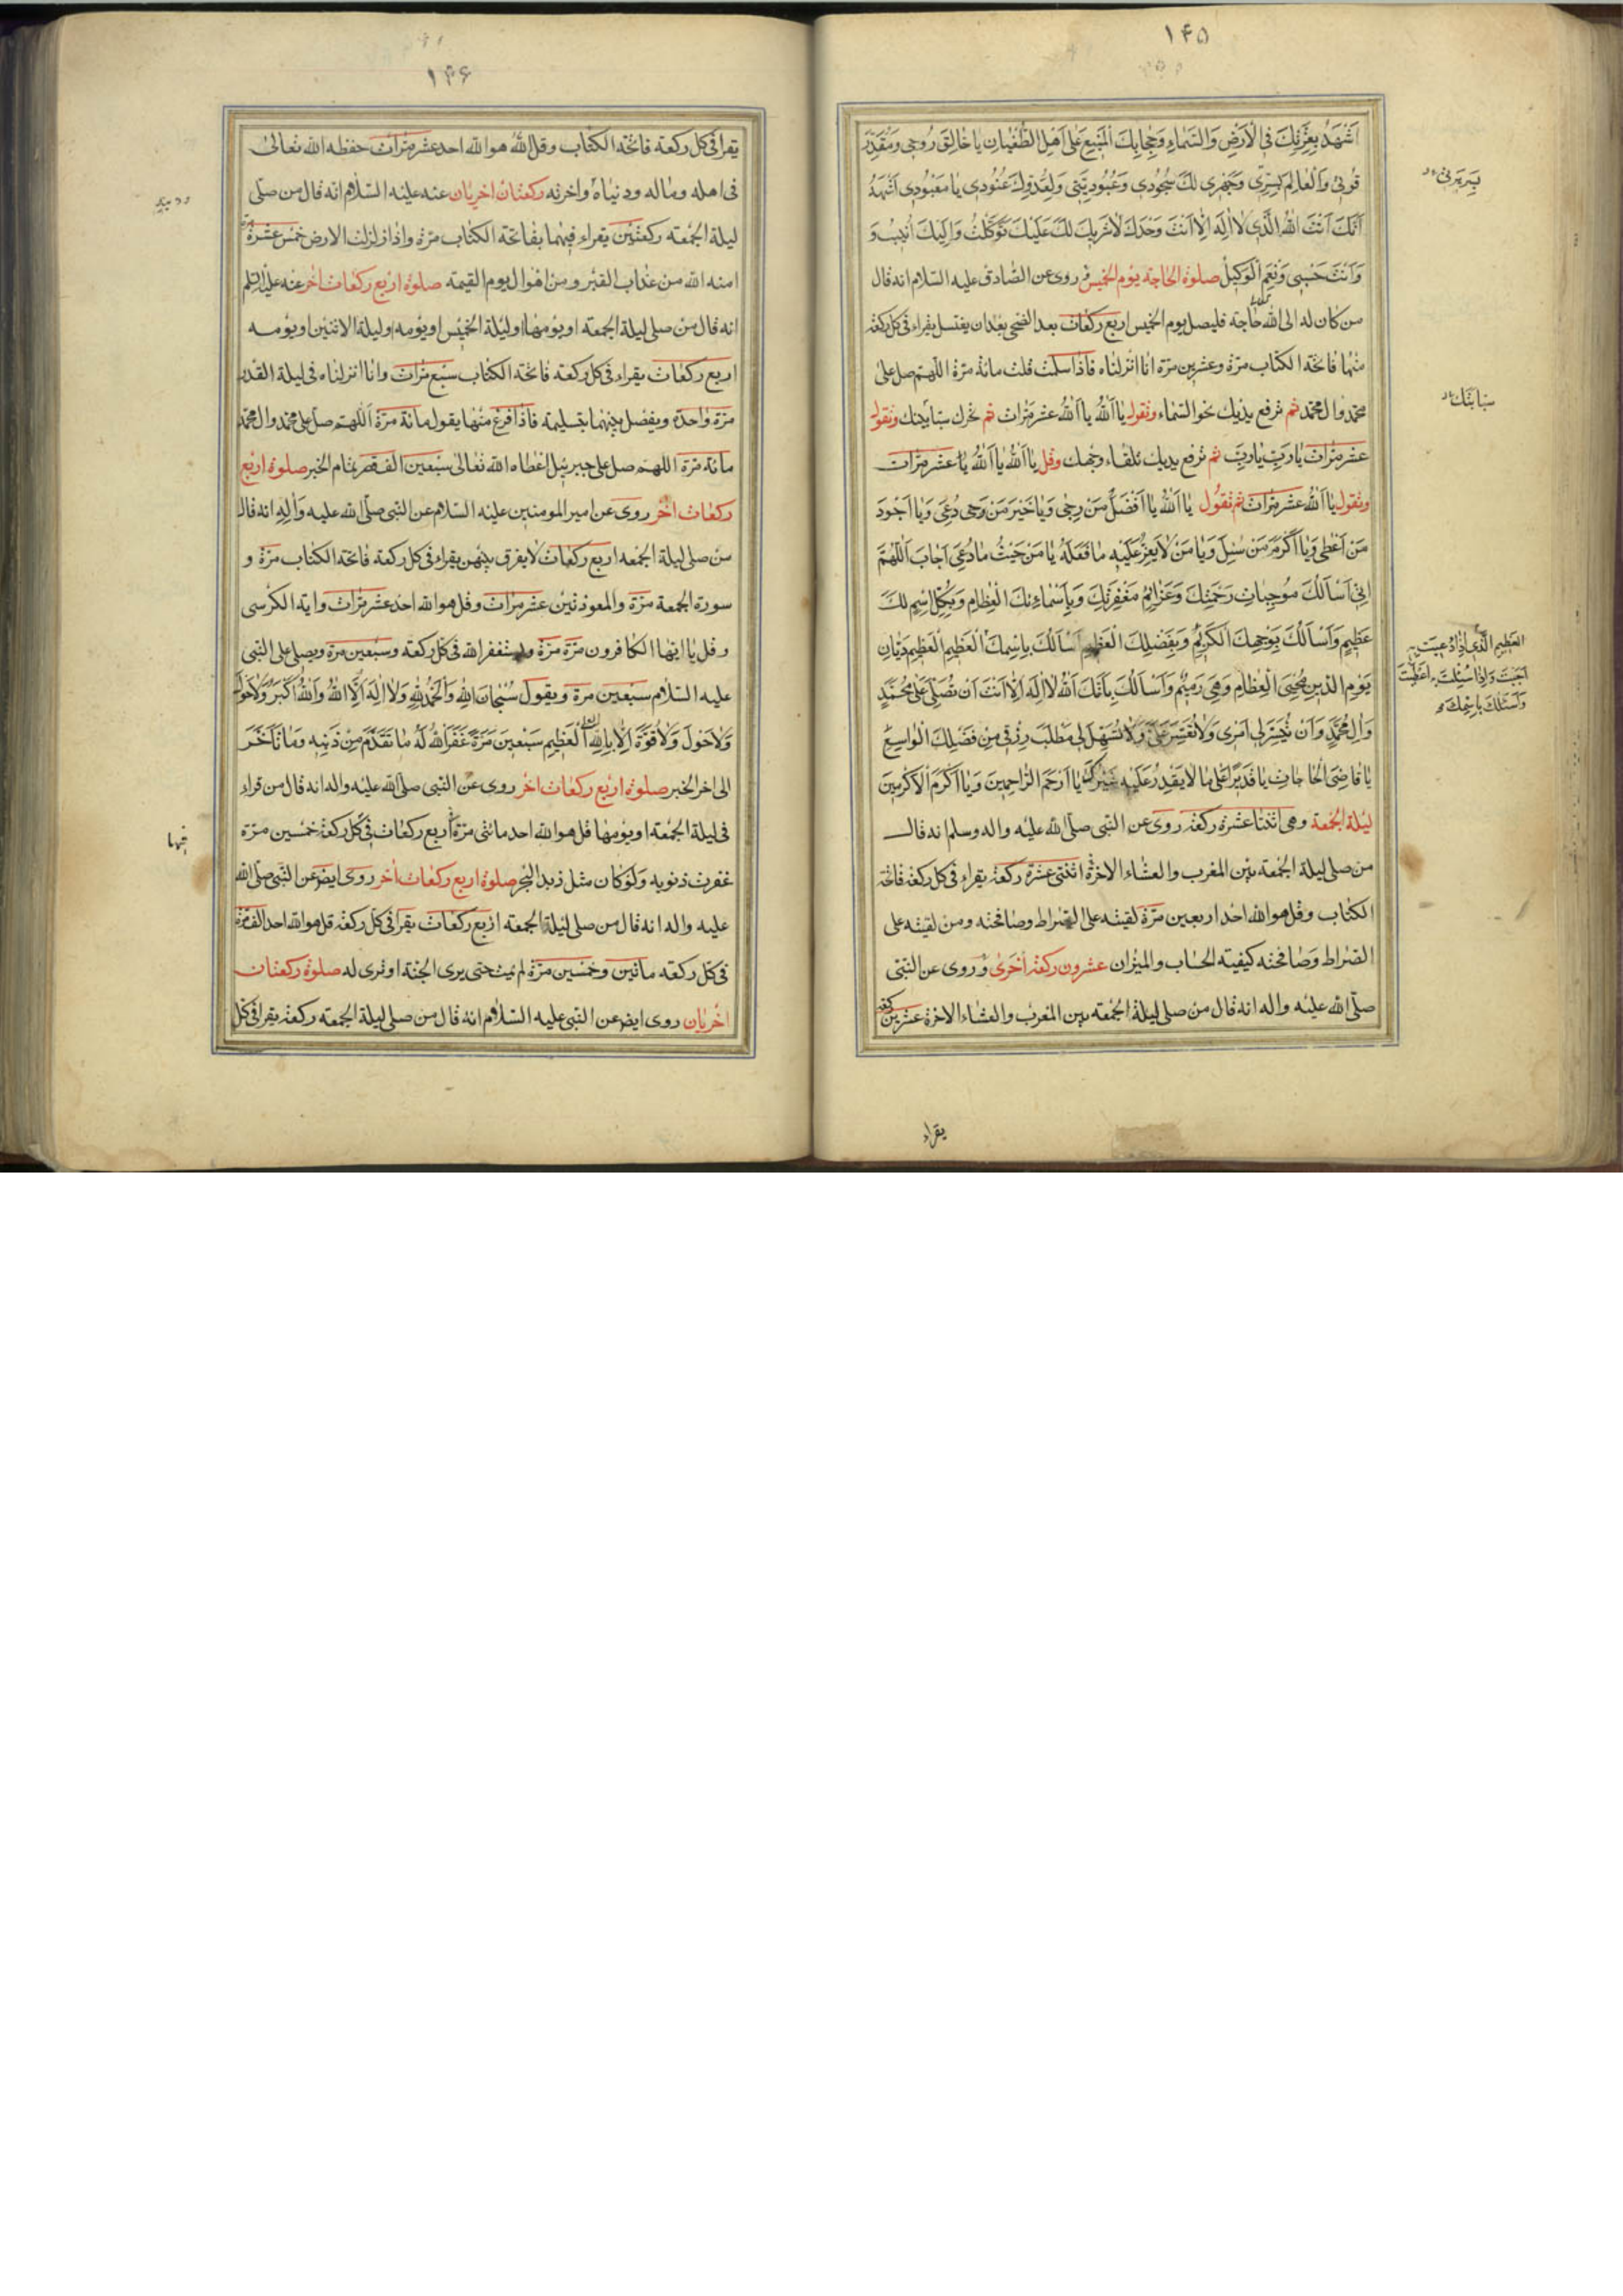 ١٤٥
اَشْهَدُ بِعِزَّتِكَ فِى الْاَرْضِ وَالسَّمٰاءِ وَحِجٰابِكَ الْمَنيعِ عَلىٰ اَهْلِ الطُّغْيٰانِ يا خٰالِقَ رُوحِى وَمُقَدِّرَ
قُوتى وَالْعٰالِمَ بِسِرِّى وَجَهْرِى لَكَ سُجُودى وَعُبُودِيَّتى وَلِعَدُوِّكَ عُنُودى يٰا مَعْبُودى اَشْهَدُ
اَنَّكَ اَنْتَ اللهُ الَّذى لٰا اِلٰهَ اِلّٰا اَنْتَ وَحْدَكَ لٰا شَرِيكَ لَكَ عَلَيْكَ تَوَكَّلْتُ وَاِلَيْكَ اُنيبُ وَ
وَاَنْتَ حَسْبِى وَنِعْمَ الْوَكيلُ صلوة الحاجة يوم الخميس روى عن الصّادق عليه السّلام انه قال
من كان له الى الله حاجة فليصل يوم الخميس اربع ركعات بعد الضحى بعد ان يغتسل يقراء فى كل ركعة
منها فاتحة الكتاب مرّة وعشرين مرّة انا انزلناه فاذا سلمت قلت مائة مرّة اللّهم صل على
محمد وال محمد ثم ترفع يديك نحو السّماء وتقول يا اَللهُ يا اَللهُ عشر مرّات ثم تحرك سبابيتك وتقول
عشر مرّات يا رَبِّ يا رَبِّ ثم ترفع يديك تلقاء وجهك وقل يا اَللهُ يا اَللهُ يا عشر مرّات
وتقول يا اَللهُ عشر مرّات ثم تقول يا اَللهُ يا اَفْضَلَ مَنْ رُجِىَ وَيا خَيْرَ مَنْ دُعِىَ وَيا اَجْوَدَ
مَنْ اَعْطىٰ وَيا اَكْرَمَ مَنْ سُئِلَ وَيا مَنْ لٰا يَعِزُّ عَلَيْهِ مٰا فَعَلَهُ يا مَنْ حَيْثُ مٰا دُعِىَ اَجٰابَ اَللّٰهُمَّ
اِنّى اَسْاَلُكَ مُوجِبٰاتِ رَحْمَتِكَ وَعَزٰائِمَ مَغْفِرَتِكَ وَبِاَسْمٰاءِكَ الْعِظٰامِ وَبِكُلِّ اِسْمٍ لَكَ
عَظيمٍ وَاَسْاَلُكَ بِوَجْهِكَ الْكَريمِ وَبِفَضْلِكَ الْعَظيمِ اَسْاَلُكَ بِاسْمِكَ الْعَظيمِ الْعَظيمِ دَيّٰانِ
يَوْمِ الدّينِ مُحْيِى الْعِظٰامِ وَهِىَ رَميمٌ وَاَسْاَلُكَ بِاَنَّكَ اَللهُ لٰا اِلٰهَ اِلّٰا اَنْتَ اَنْ تُصَلِّىَ عَلىٰ مُحَمَّدٍ
وَاٰلِ مُحَمَّدٍ وَاَنْ تُيَسِّرَ لى اَمْرى وَلٰا تُعَسِّرَ عَلَىَّ وَتُسَهِّلَ لى مَطْلَبَ رِزْقى مِنْ فَضْلِكَ الْوٰاسِعِ
يٰا قٰاضِىَ الْحٰاجٰاتِ يٰا قَديرًا عَلىٰ مٰا لٰا يَقْدِرُ عَلَيْهِ غَيْرُكَ يٰا اَرْحَمَ الرّٰاحِمينَ وَيٰا اَكْرَمَ الْاَكْرَمينَ
ليلة الجمعة وهى اثنتا عشرة ركعة روى عن النّبى صلّى الله عليه واله وسلم انه قال
من صلى ليلة الجمعة بين المغرب والعشاء الاخرة اثنتى عشرة ركعة يقراء فى كل ركعة فاتحة
الكتاب وقل هو الله احد اربعين مرّة لقيته على الصّراط وصافحته ومن لقيته على
الصّراط وصافحته كفيته الحساب والميزان عشرون ركعة اُخرى وروى عن النّبى
صلّى الله عليه واله انه قال من صلى ليلة الجمعة بين المغرب والعشاء الاخرة عشرين ركعة
سبابتك
العَظيمِ الَّذى اِذٰا دُعيتَ بِهِ
اَجَبْتَ وَاِذٰا سُئِلْتَ بِهِ اَعْطَيْتَ
وَاَسْئَلُكَ بِاسْمِكَ
يقراء
١٤٦
يقرا فى كل ركعة فاتحة الكتاب وقل الله هو الله احد عشر مرّات حفظه الله تعالى
فى اهله وماله ودنياه واخرته ركعتان اخريان عنه عليه السّلام انه قال من صلّى
ليلة الجمعة ركعتين يقراء فيهما بفاتحة الكتاب مرّة واذا زلزلت الارض خمس عشرة مرة
امنه الله من عذاب القبر ومن اهوال يوم القيمة صلوة اربع ركعات اخر عنه عليه السّلم
انه قال من صلى ليلة الجمعة او يومها او ليلة الخميس او يومه او ليلة الاثنين او يومه
اربع ركعات يقراء فى كل ركعة فاتحة الكتاب سبع مرّات وانا انزلناه فى ليلة القدر
مرّة واحدة ويفصل بينهما بتسليمة فاذا فرغ منها يقول مائة مرّة اللّهم صلّ على محمد وال محمد
مائة مرّة اللهم صل على جبرئيل اعطاه الله تعالى سبعين الف قصر تمام الخبر صلوة اربع
ركعات اُخر روى عن امير المومنين عليه السّلام عن النّبى صلّى الله عليه وآلِهِ انه قال
من صلى ليلة الجمعه اربع ركعات لا يفرق بينهن يقراء فى كل ركعة فاتحة الكتاب مرّة و
سورة الجمعة مرّة والمعوذتين عشر مرّات وقل هو الله احد عشر مرّات واية الكرسى
وقل يا ايها الكافرون مرّة مرّة ويستغفر الله فى كل ركعة وسبعين مرة ويصلى على النبى
عليه السّلام سبعين مرة ويقول سُبْحٰانَ اللهِ وَالْحَمْدُ لِلّٰهِ وَلٰا اِلٰهَ اِلَّا اللهُ وَاللهُ اَكْبَرُ وَلٰا حَوْلَ
وَلٰا حَوْلَ وَلٰا قُوَّةَ اِلّٰا بِاللهِ الْعَظيمِ سَبْعينَ مَرَّةً غَفَرَ اللهُ لَهُ مٰا تَقَدَّمَ مِنْ ذَنْبِهِ وَمٰا تَاَخَّرَ
الى اخر الخبر صلوة اربع ركعات اخر روى عن النّبى صلّى الله عليه واله انه قال من قراء
فى ليلة الجمعة او يومها قل هو الله احد مائتى مرّة اربع ركعات فى كل ركعة خمسين مرّة
غفرت ذنوبه ولو كان مثل زبد البحر صلوة اربع ركعات اُخر روى ايض عن النّبى صلّى الله
عليه واله انه قال من صلى ليلة الجمعة اربع ركعات يقرا فى كلّ ركعة قل هو الله احد الف مرّة
فى كلّ ركعة مائتين وخمسين مرّة لم يمت حتى يرى الجنة او ترى له صلوة ركعتان
اخريان روى ايض عن النّبى عليه السّلام انه قال من صلى ليلة الجمعة ركعة يقرا فى كل
فيها